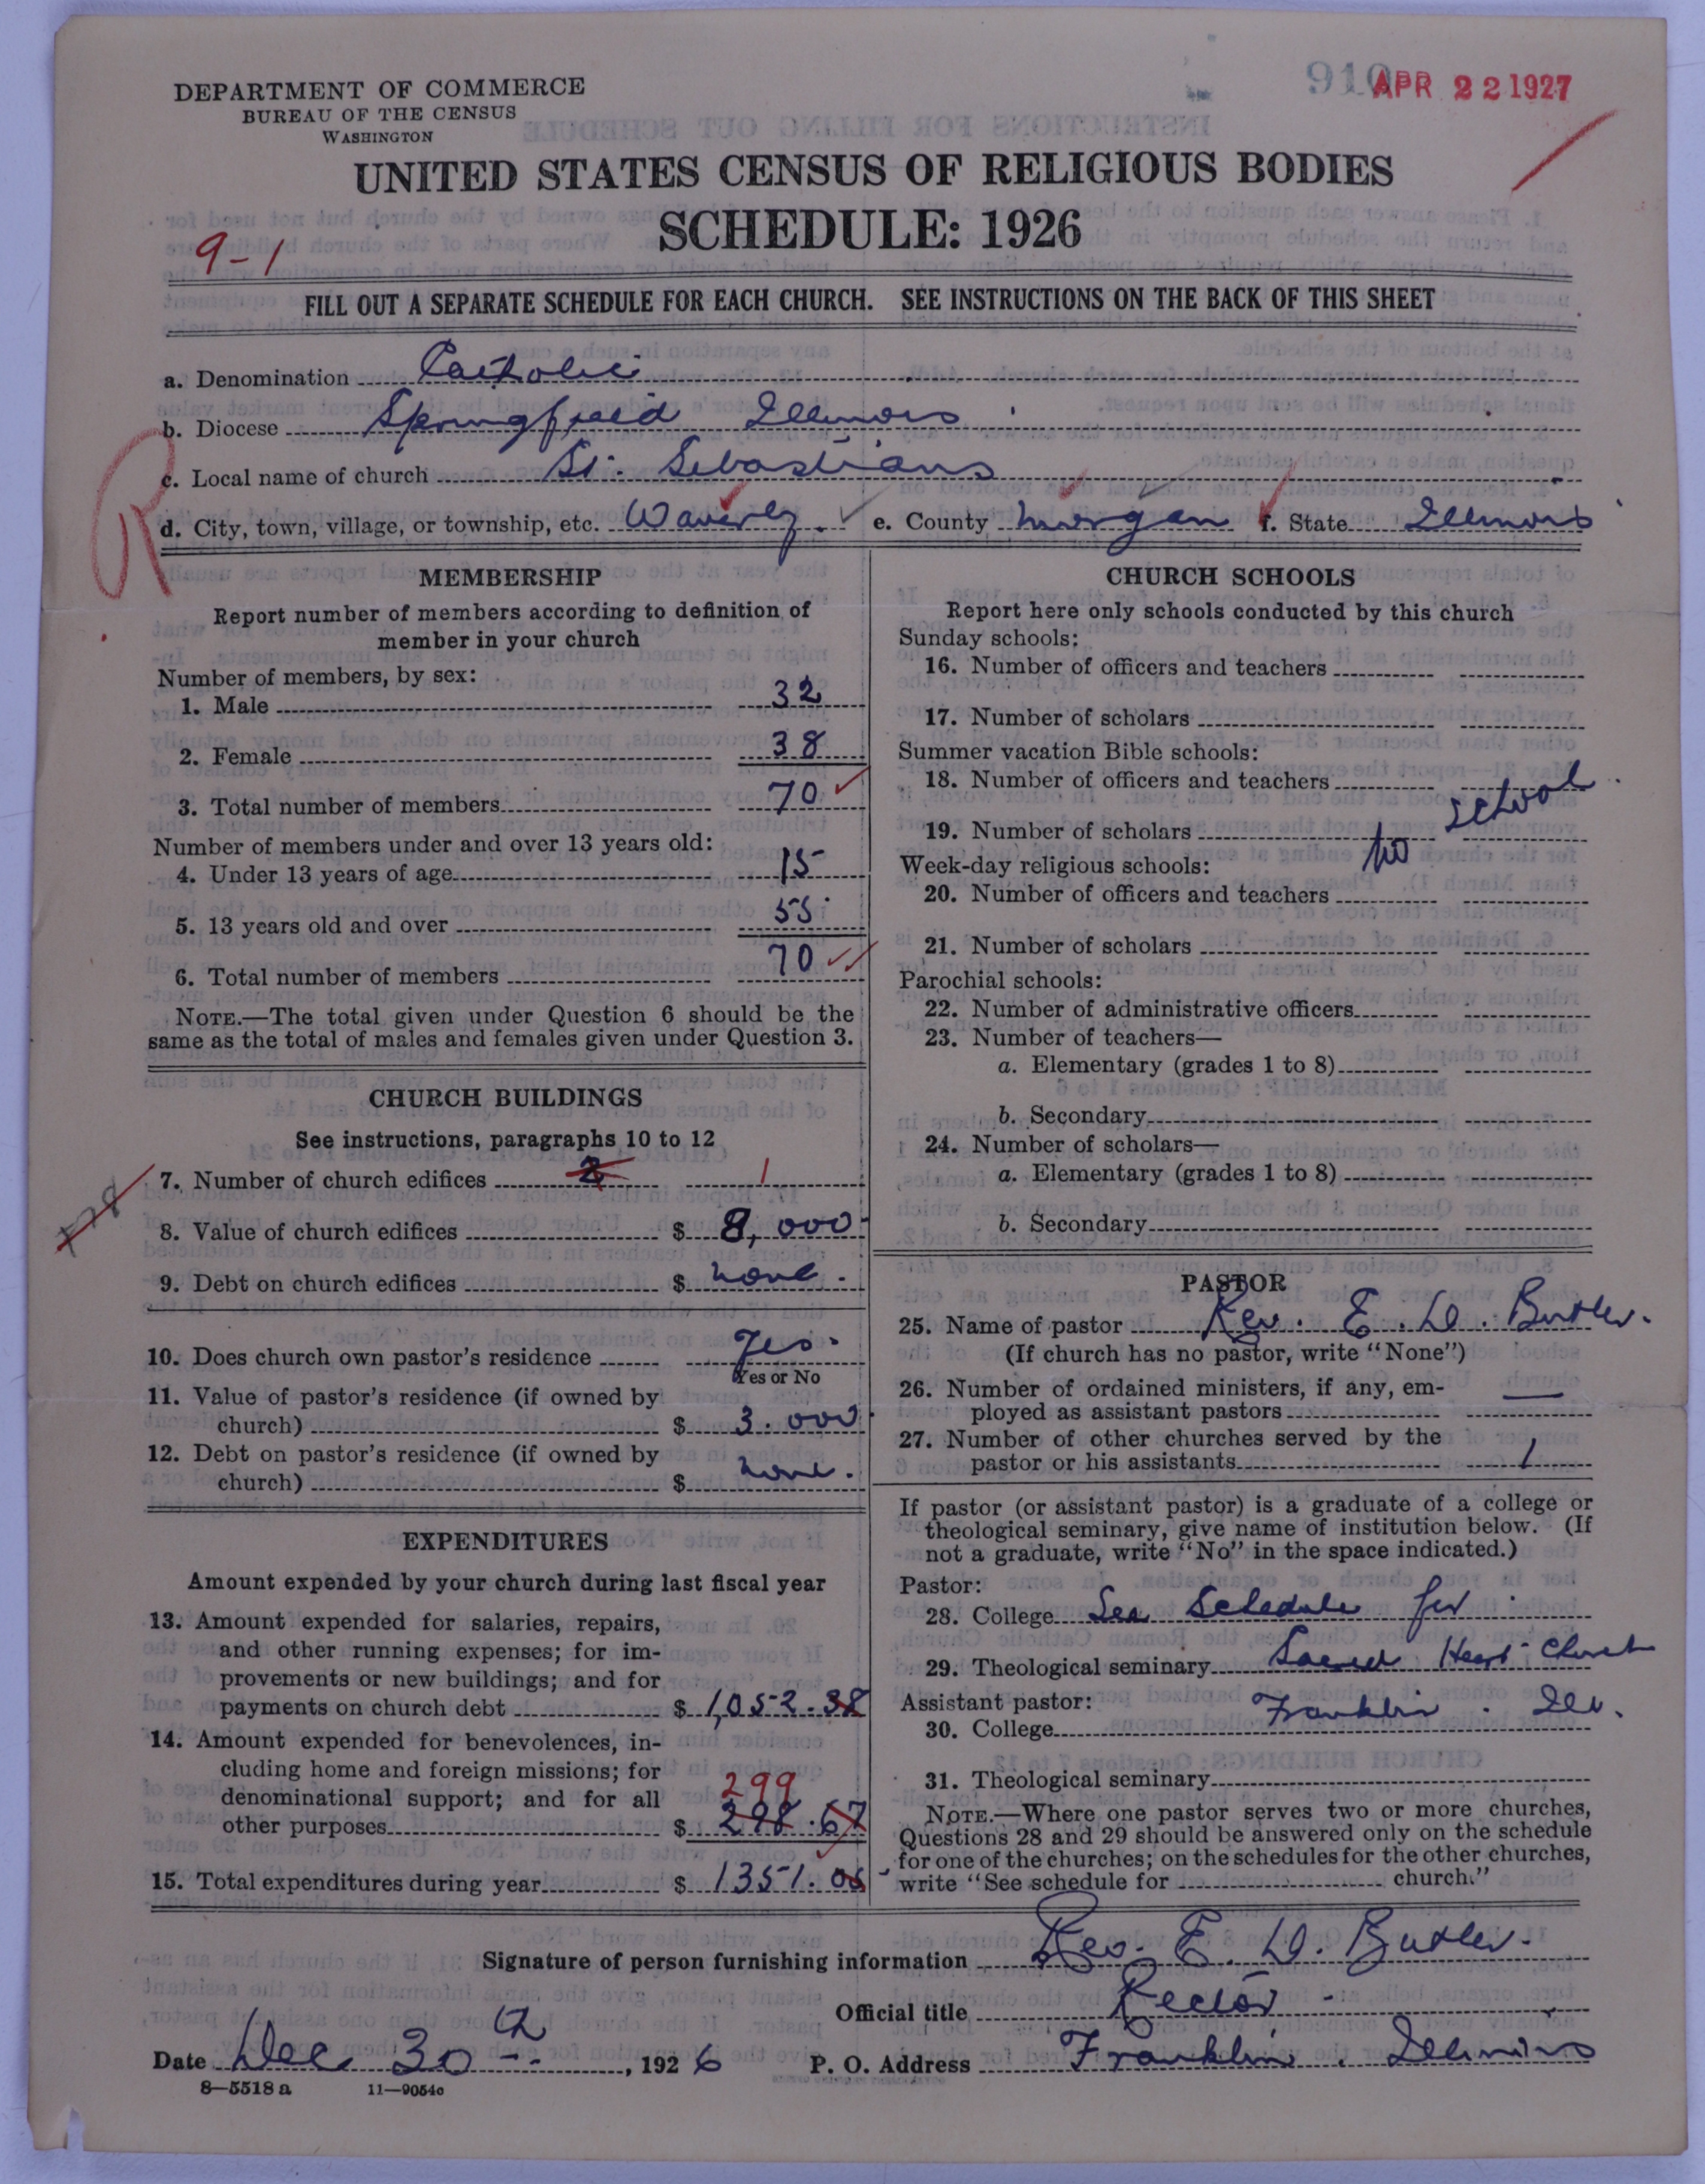 910 APR 22 1927
DEPARTMENT OF COMMERCE
BUREAU OF THE CENSUS
WASHINGTON
UNITED STATES CENSUS OF RELIGIOUS BODIES
SCHEDULE: 1926
9-1
FILL OUT A SEPARATE SCHEDULE FOR EACH CHURCH. SEE INSTRUCTIONS ON THE BACK OF THIS SHEET
a. Denomination Catholic
b. Diocese Springfield Illinois
R
c. Local name of church St. Sebastians
d. City, town, village, or township, etc. Waverly. e. County Morgan f. State Illinois
MEMBERSHIP
Report number of members according to definition of
member in your church
Number of members, by sex:
1. Male 32
2. Female 38
3. Total number of members 70
Number of members under and over 13 years old:
4. Under 13 years of age 15
5. 13 years old and over 55
6. Total number of members 70
NOTE.—The total given under Question 6 should be the
same as the total of males and females given under Question 3.
CHURCH BUILDINGS
See instructions, paragraphs 10 to 12
7. Number of church edifices 2 1
8. Value of church edifices $ 8,000
9. Debt on church edifices $ none.
10. Does church own pastor's residence Yes.
Yes or No
11. Value of pastor's residence (if owned by
church) $ 3.000
12. Debt on pastor's residence (if owned by
church) $ none.
EXPENDITURES
Amount expended by your church during last fiscal year
13. Amount expended for salaries, repairs,
and other running expenses; for im-
provements or new buildings; and for
payments on church debt $ 1,052.38
14. Amount expended for benevolences, in-
cluding home and foreign missions; for
denominational support; and for all 299
other purposes $ 298.67
15. Total expenditures during year $ 1351.05
CHURCH SCHOOLS
Report here only schools conducted by this church
Sunday schools:
16. Number of officers and teachers
17. Number of scholars
Summer vacation Bible schools:
18. Number of officers and teachers
19. Number of scholars No school
Week-day religious schools:
20. Number of officers and teachers
21. Number of scholars
Parochial schools:
22. Number of administrative officers
23. Number of teachers—
a. Elementary (grades 1 to 8)
b. Secondary
24. Number of scholars—
a. Elementary (grades 1 to 8)
b. Secondary
PASTOR
25. Name of pastor Rev. E. D. Butler.
(If church has no pastor, write "None")
26. Number of ordained ministers, if any, em-
ployed as assistant pastors —
27. Number of other churches served by the
pastor or his assistants 1
If pastor (or assistant pastor) is a graduate of a college or
theological seminary, give name of institution below. (If
not a graduate, write "No" in the space indicated.)
Pastor:
28. College See Schedule for
29. Theological seminary Sacred Heart Church
Assistant pastor:
30. College Franklin. Ill.
31. Theological seminary
NOTE.—Where one pastor serves two or more churches,
Questions 28 and 29 should be answered only on the schedule
for one of the churches; on the schedules for the other churches,
write "See schedule for church."
Signature of person furnishing information Rev. E. D. Butler.
Official title Rector
Date Dec 30th, 1926 P. O. Address Franklin. Illinois
8—5518 a 11—9054c